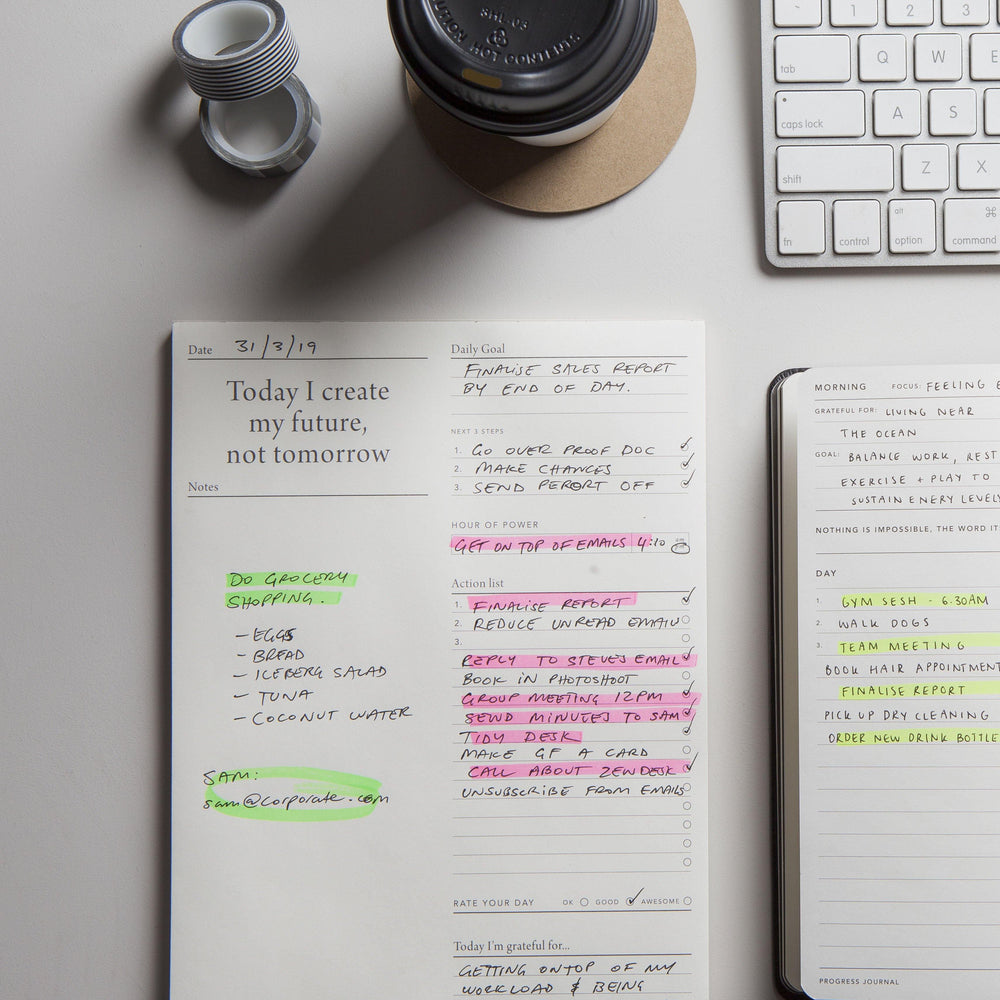 CAUTION HOT CONTENTS
1 2 3
tab Q W E
caps lock A S
shift Z X
fn control alt option ⌘ command
Date 31/3/19
Today I create
my future,
not tomorrow
Notes
DO GROCERY
SHOPPING.
– EGGS
– BREAD
– ICEBERG SALAD
– TUNA
– COCONUT WATER
SAM:
sam@corporate.com
Daily Goal
FINALISE SALES REPORT
BY END OF DAY.
NEXT 3 STEPS
1. GO OVER PROOF DOC
2. MAKE CHANGES
3. SEND REPORT OFF
HOUR OF POWER
GET ON TOP OF EMAILS 4:10
Action list
1. FINALISE REPORT
2. REDUCE UNREAD EMAIL
3.
REPLY TO STEVES EMAIL
BOOK IN PHOTOSHOOT
GROUP MEETING 12PM
SEND MINUTES TO SAM
TIDY DESK
MAKE GF A CARD
CALL ABOUT ZENDESK
UNSUBSCRIBE FROM EMAILS
RATE YOUR DAY OK GOOD AWESOME
Today I'm grateful for...
GETTING ON TOP OF MY
WORKLOAD & BEING
MORNING FOCUS: FEELING E
GRATEFUL FOR: LIVING NEAR
THE OCEAN
GOAL: BALANCE WORK, REST
EXERCISE + PLAY TO
SUSTAIN ENERY LEVELS
NOTHING IS IMPOSSIBLE, THE WORD IT
DAY
1. GYM SESH - 6.30AM
2. WALK DOGS
3. TEAM MEETING
BOOK HAIR APPOINTMENT
FINALISE REPORT
PICK UP DRY CLEANING
ORDER NEW DRINK BOTTLE
PROGRESS JOURNAL